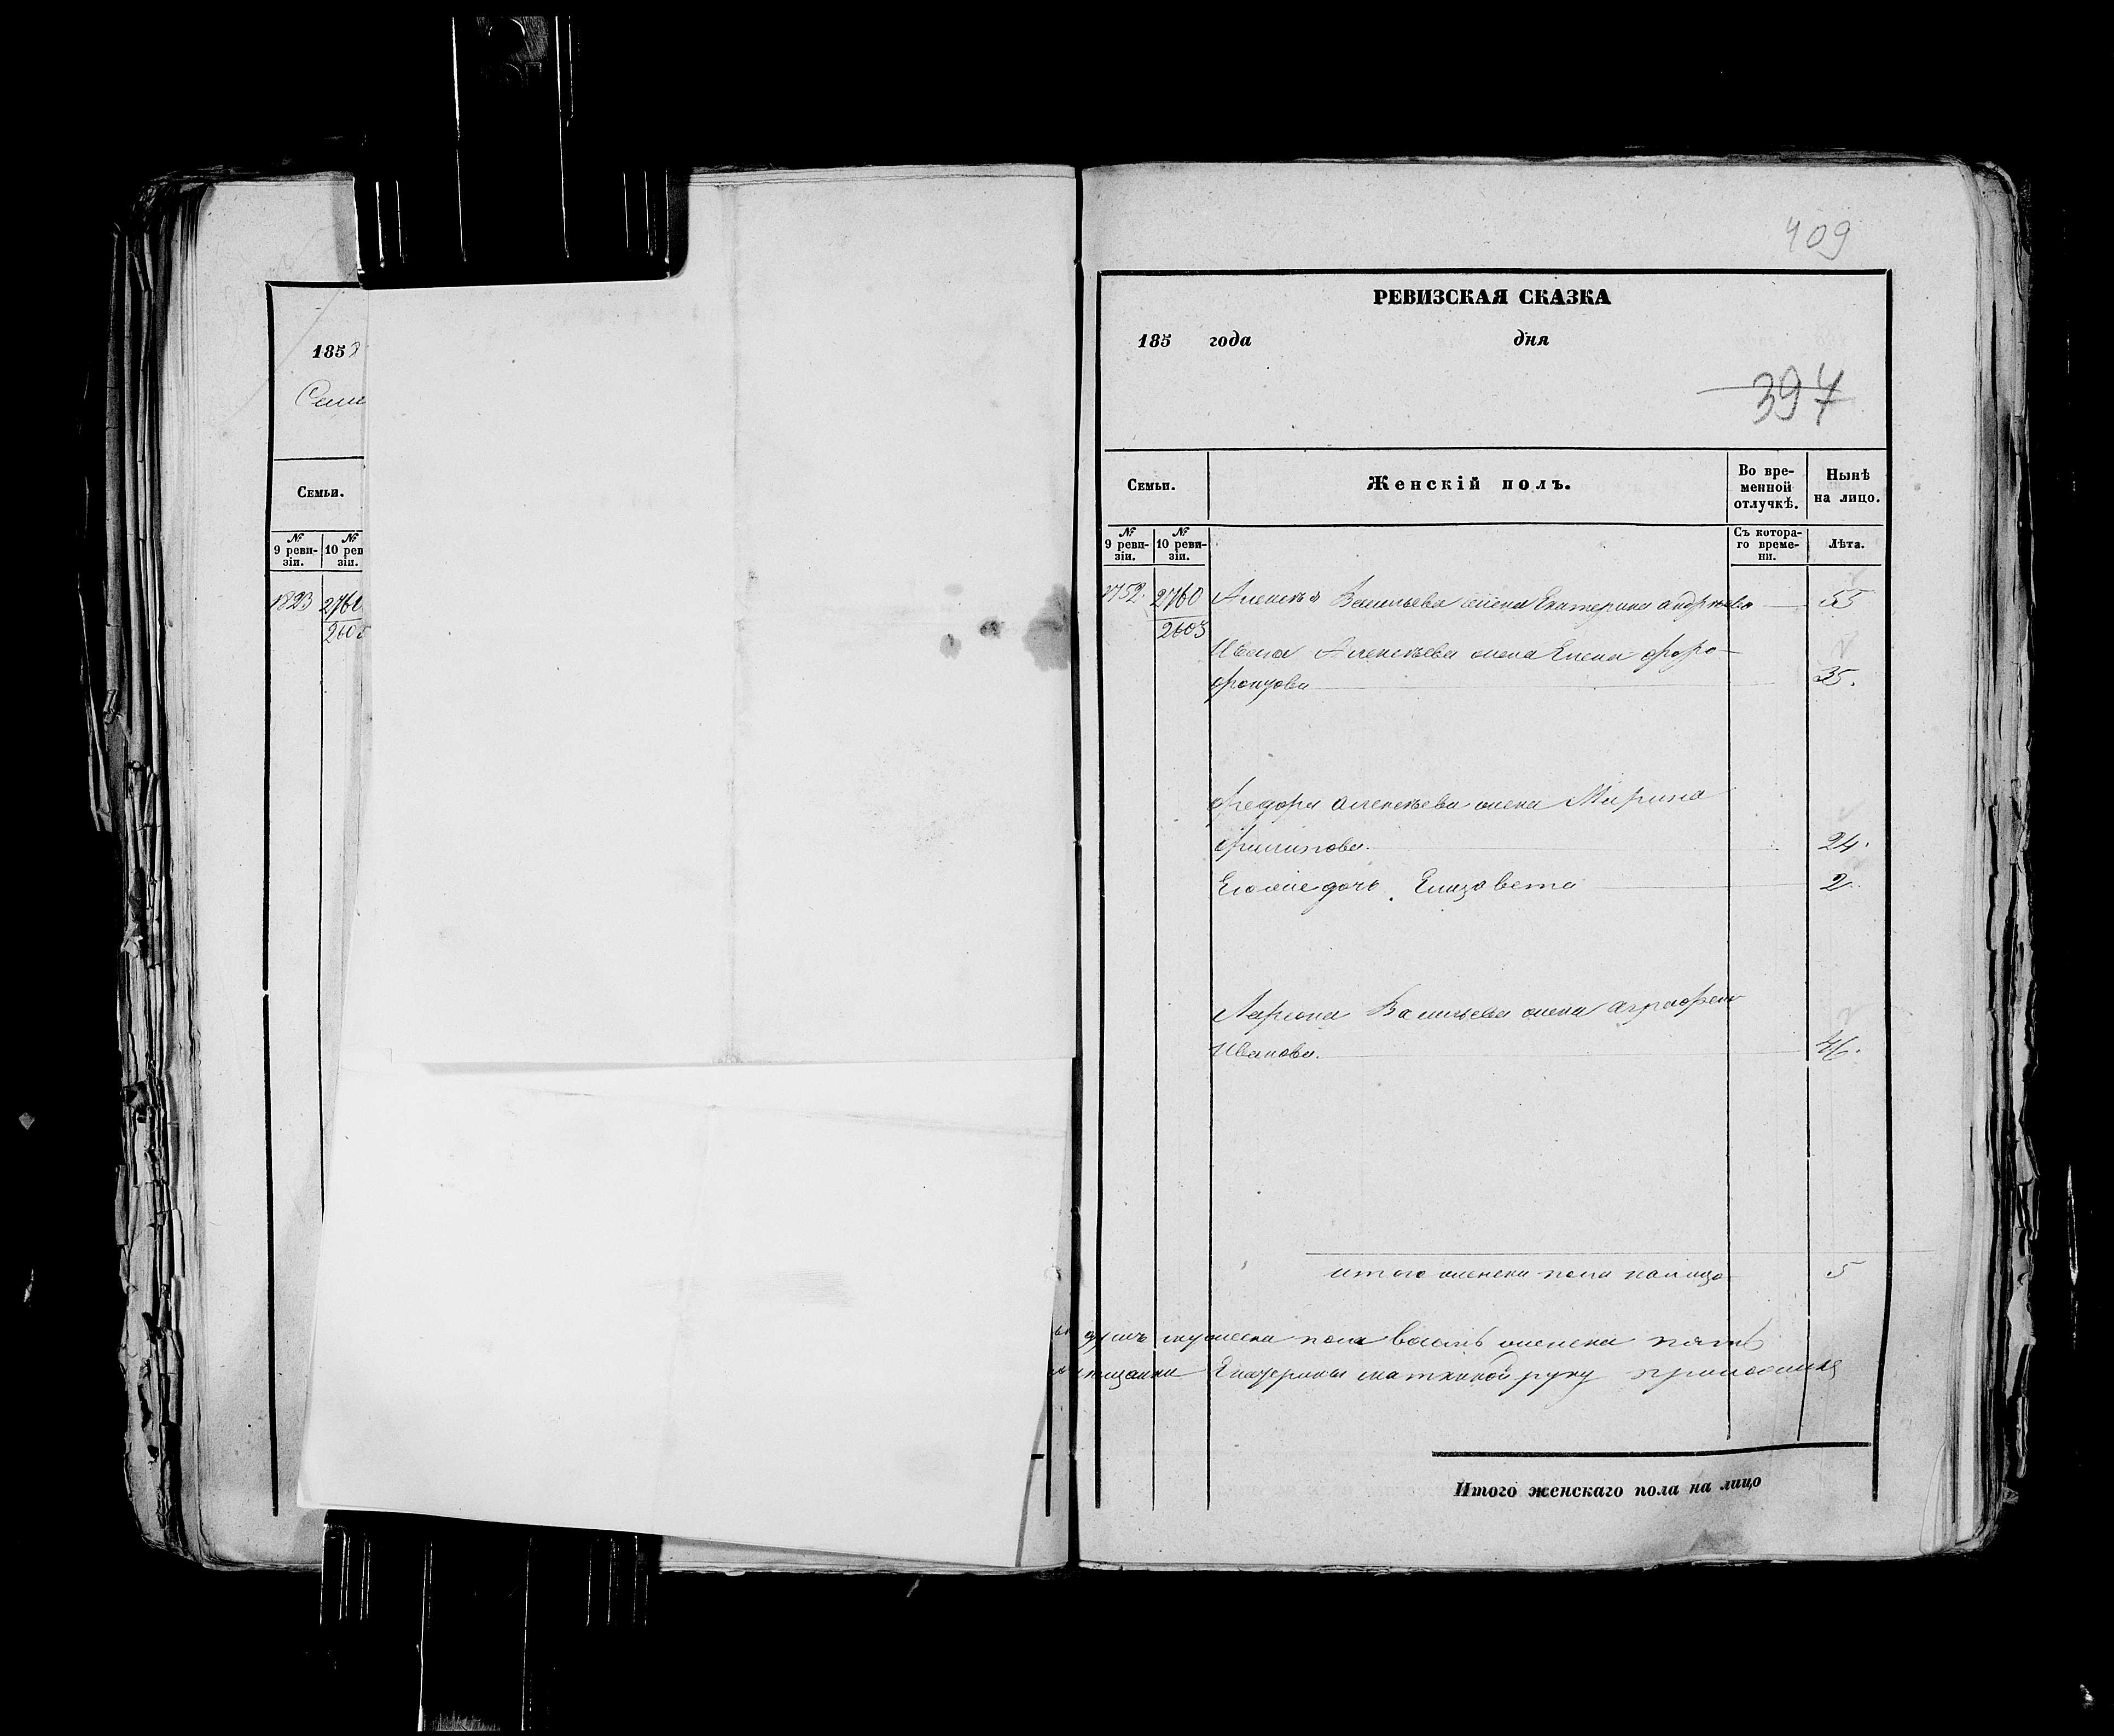 1858
Семьи.
№ 9 реви-зіи.
№ 10 рев зіи.
1823 2760
2603
409
РЕВИЗСКАЯ СКАЗКА
185 года дня
397
Семьи.
Женскій полъ.
Во вре-менной отлучкѣ.
Нынѣ на лицо.
№ 9 реви-зіи.
№ 10 реви-зіи.
Съ котора-го време-ни.
Лѣта.
2760 Алексѣя Васильева жена Екатерина андрѣева 55
2603
Ивана Алексѣева жена Елена форо-
фонтова 35.
Федора алексѣева жена Марина
Филипова. 24.
Его же дочь Елизовета 2.
Лариона Васильева жена аграфена
Иванова. 46.
итого женска пола налицо 5
душъ мужеска пола восемь женска пять
мещанки Екатерины руку
Итого женскаго пола на лицо